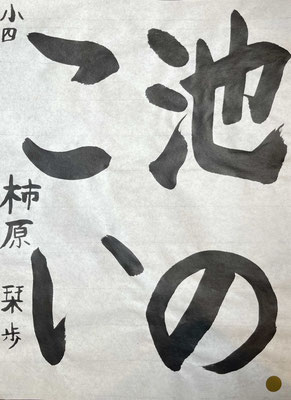 池の
こい
小四
柿原 栞歩